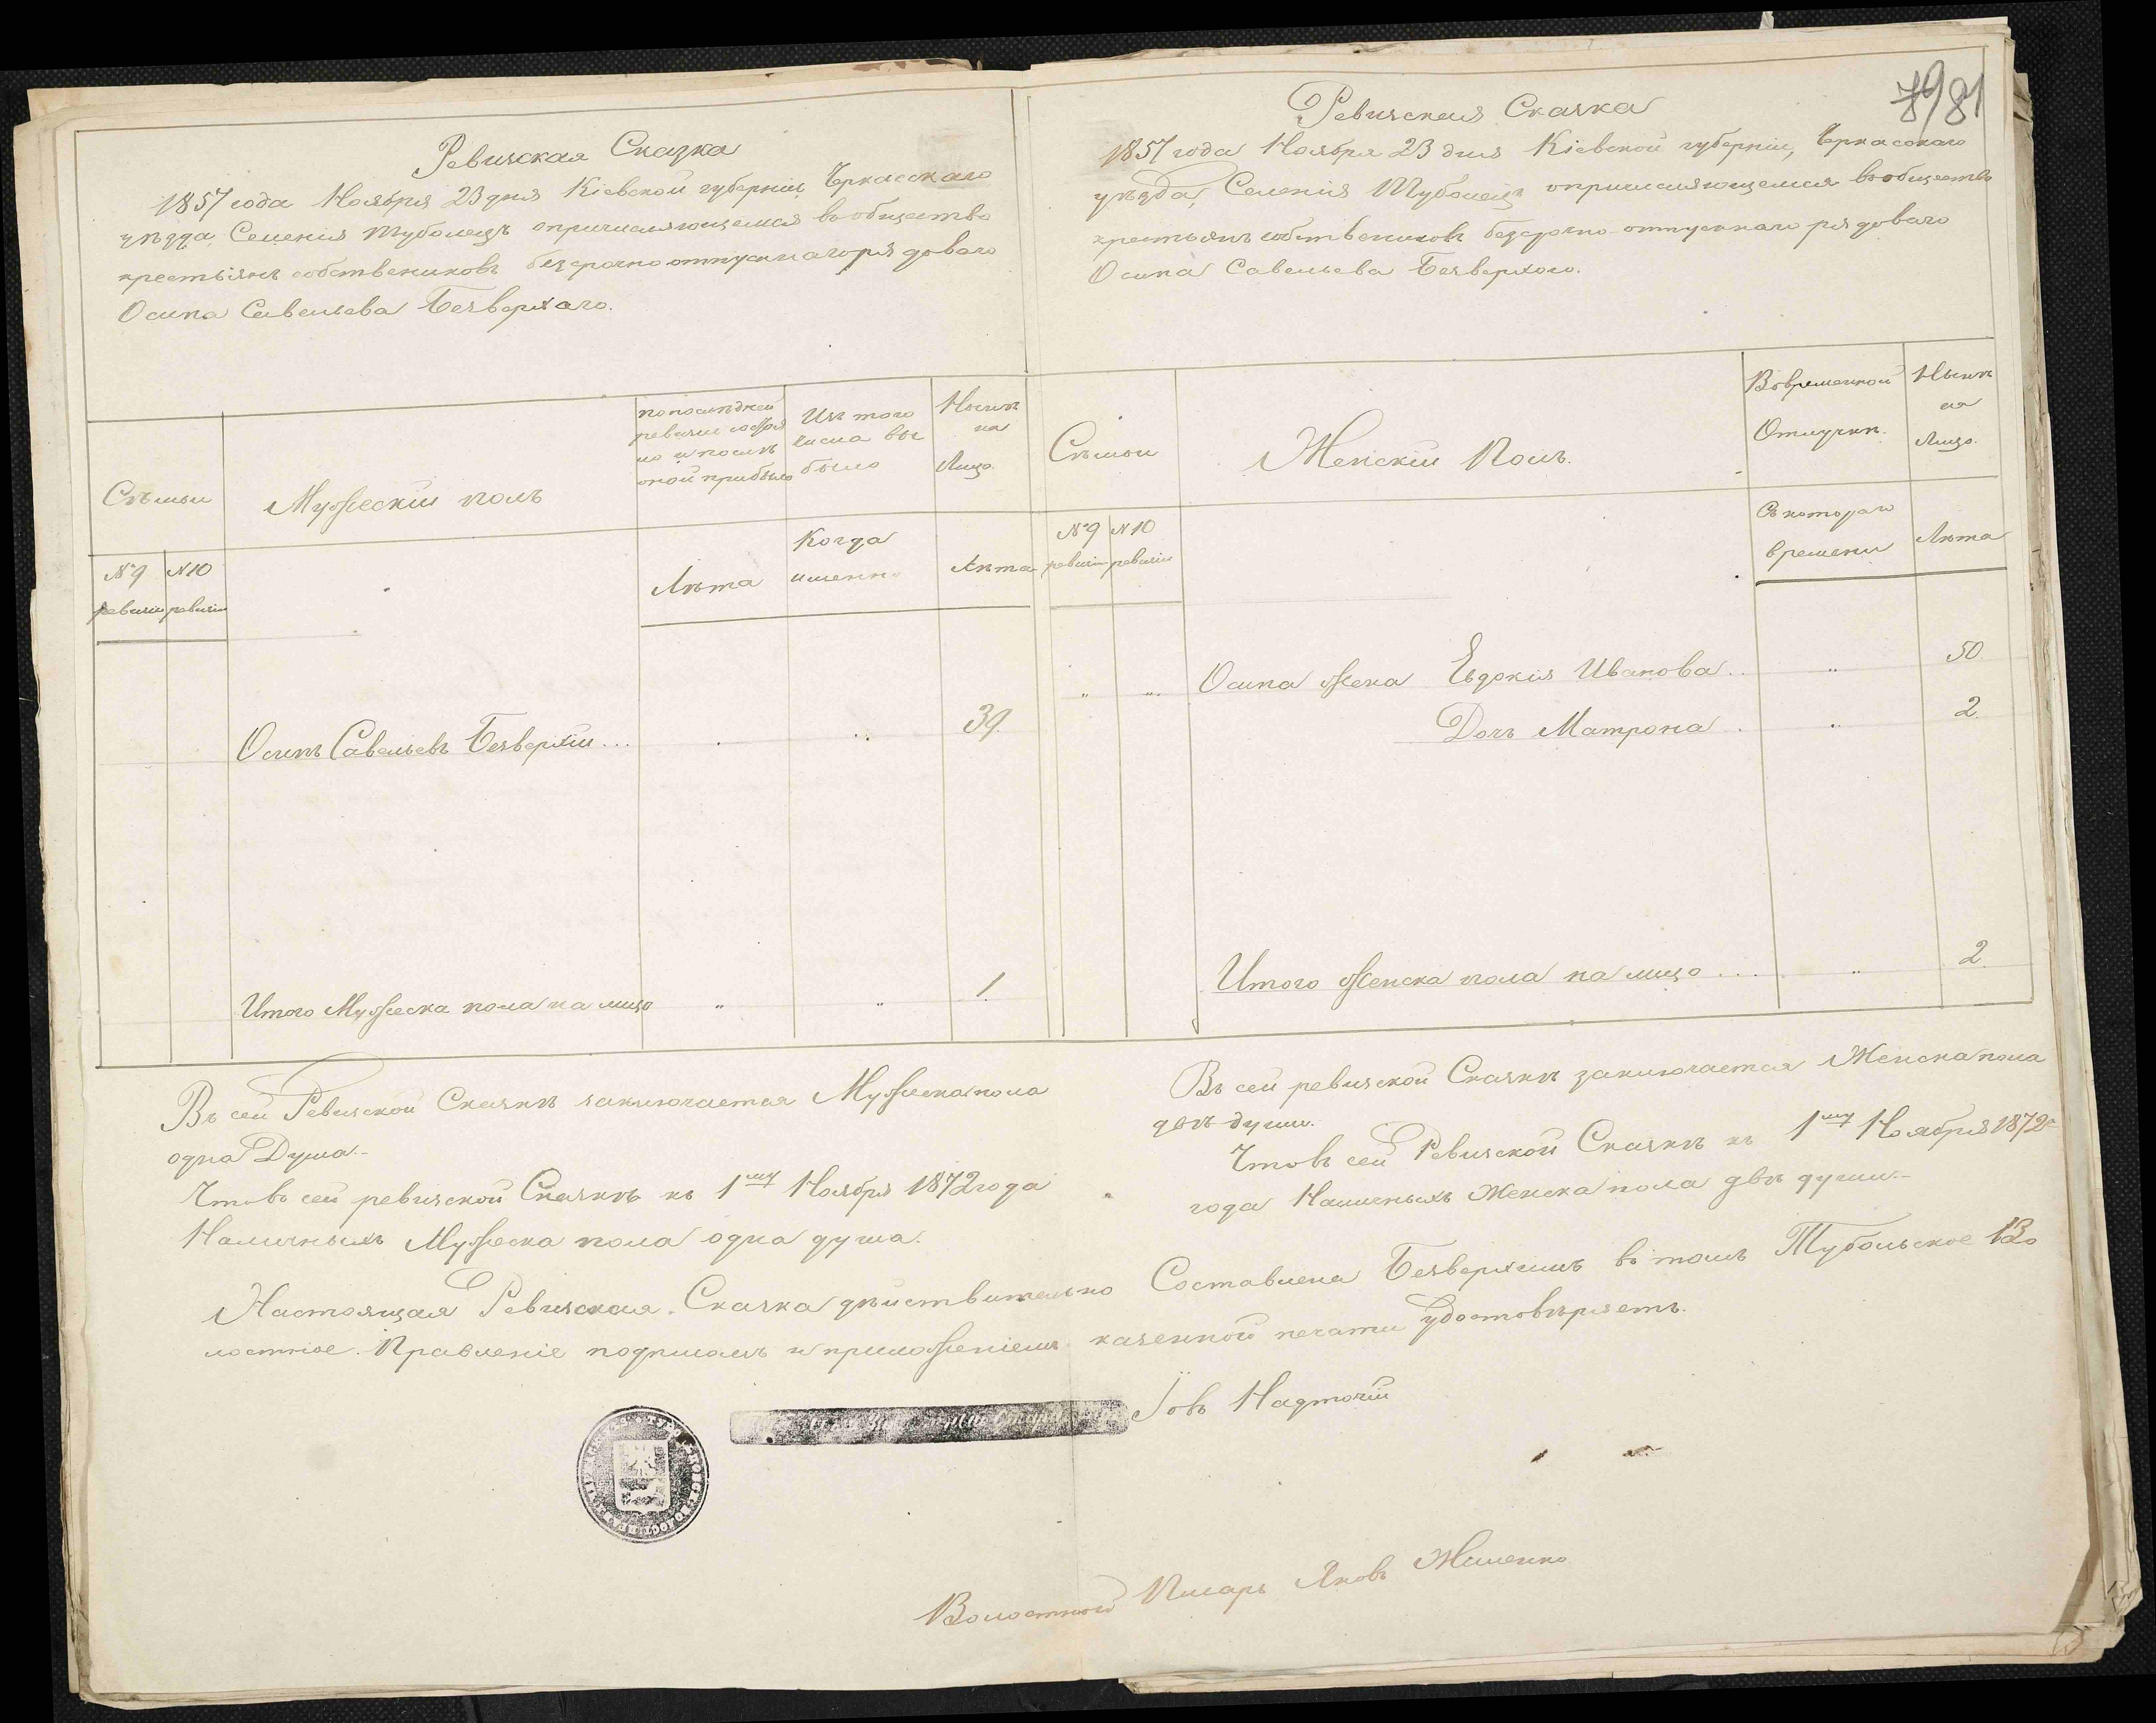 79 81
Ревизская Сказка
1857 года Ноября 23 дня Кіевской губерніи, Черкасскаго
уѣзда, Селенія Туболецъ опричисляющемся въ общество
крестьянъ собствениковъ безсрочно отпускнаго рядоваго
Осипа Савельева Безверхаго.
Сѣмьи
Мужескій полъ
по послѣдней
ревизіи состоя
ло и послѣ
оной прибыло
Изъ того
числа вы
было
Нынѣ
на
Лицо.
№ 9
ревизіи
№ 10
ревизіи
Лѣта
Когда
именно
Лѣта
Осипъ Савельевъ Безверхій ... 39.
Итого Мужеска пола на лицо " " 1.
Въ сей Ревизской Сказкѣ заключается Мужеска пола
одна Душа.
Что въ сей ревизской Сказкѣ къ 1му Ноября 1872 года
Наличныхъ Мужеска пола одна душа.
Ревизская Сказка
1857 года Ноября 23 дня Кіевской губерніи, Черкасскаго
уѣзда, Селенія Тубонецъ опричисляющемся въ общество
крестьянъ собствениковъ безсрочно-отпускнаго рядоваго
Осипа Савельева Безверхого.
Сѣмьи
Женскій Полъ.
Въ временной
Отлучкѣ.
Нынѣ
на
Лицо.
№ 9
ревизіи
№ 10
ревизіи
Съ котораго
времени
Лѣта
" " Осипа жена Евдокія Иванова .. " 50
Дочь Матрона . " 2.
Итого Женска пола на лицо .... " 2.
Въ сей ревизской Сказкѣ заключается Женска пола
двѣ души.
Что въ сей Ревизской Сказкѣ къ 1му Ноября 1872го
года Наличныхъ Женска пола двѣ души.
Настоящая Ревизская Сказка дѣйствительно Составлена Безверхимъ въ томъ Тубольское Во
лостное Правленіе подписомъ и приложеніемъ казенной печати удостовѣряетъ.
Іовъ Надточій
Волостной Писарь Яковъ